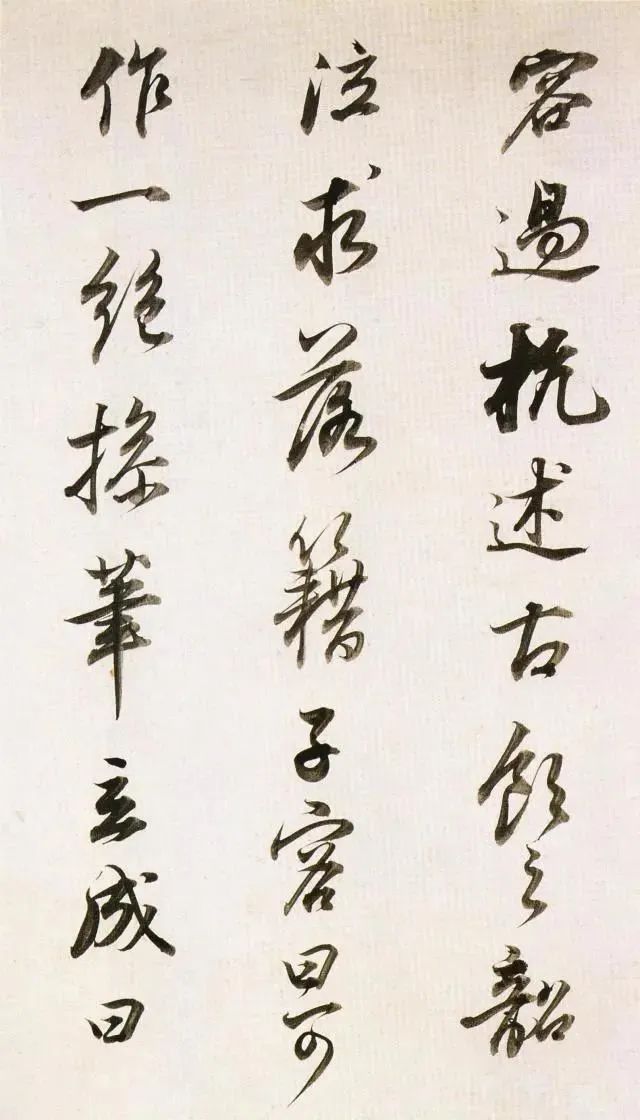 容過杭述古飲之韶
泣求落籍子容曰可
作一絕操筆立成曰